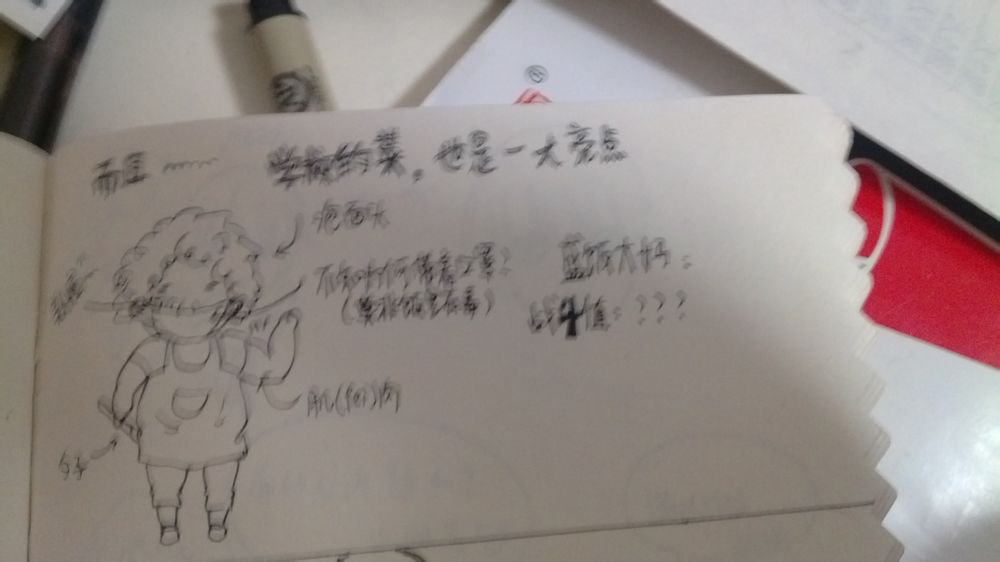 而且 学校的菜，也是一大亮点
泡面头
不知为何戴着口罩？
（莫非饭里有毒）
蓝饭大妈：
战斗值：？？？
肌(肥)肉
勺子